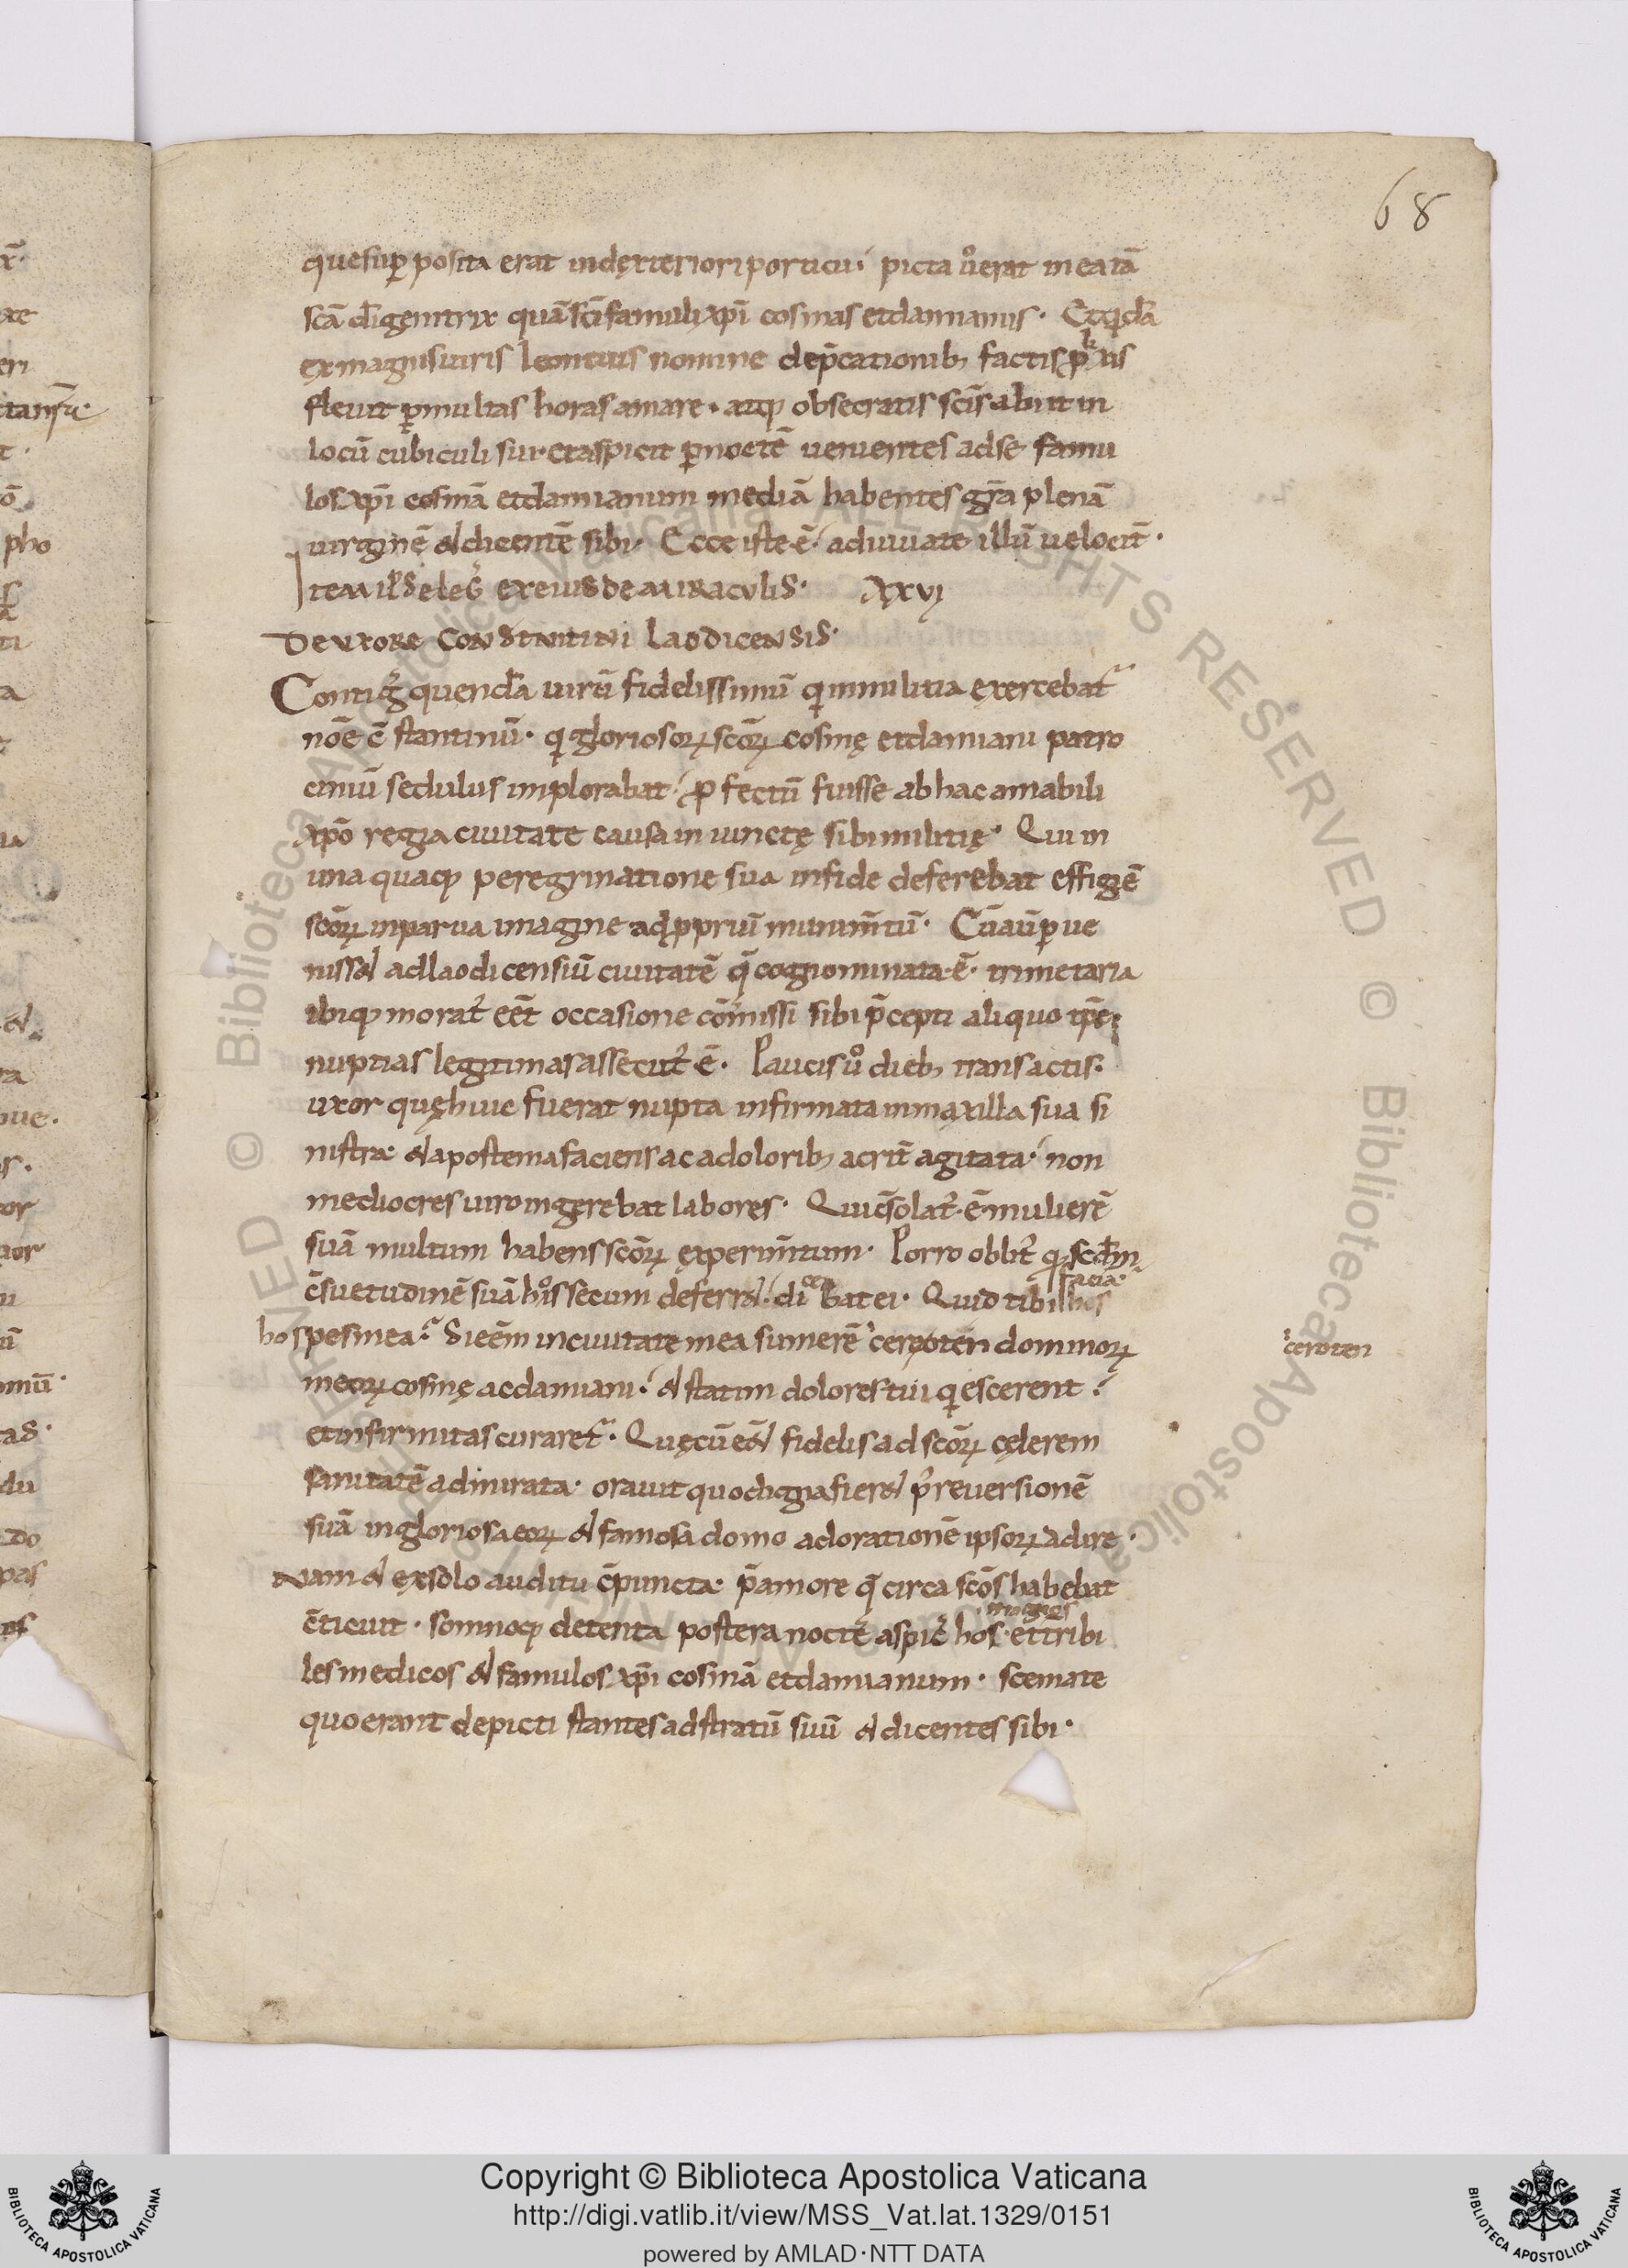 68
que sup̄ posita erat in dexteriori porticu· picta ů erat in ea tā
scā dī genitrix quā scī famuli xp̄i cosmas et damianus· Et qdā
ex magnis uiris leontius nomine dep̄cationib; factis p̄ x̄is
fleuit p̄ multas horas amare· atq; obsecratis scīs abiit in
locū cubiculi sui· et aspicit p̄ noctē uenientes ad se famu
los xp̄i cosmā et damianum mediā habentes gr̄a plenā
uirginē & dicentē sibi· Ecce iste ē· adiuuate illū uelocit̄·
Item eiusde de miraculis· XXVI
De uxore Constntini laodicensis·
Contiḡ quendā uirū fidelissimū q in militia exercebat̄
nōe c̄stantinū· q gloriosoꝝ scōꝝ cosmę et damiani patro
ciniū sedulus implorabat· p̄fectū fuisse ab hac amabili
xp̄o regia ciuitate causa iniunctę sibi militię· Qui in
una quaq; peregrinatione sua in fide deferebat effigiē
scōꝝ in parua imagine ad p̄priū munim̄tū· Cū aū p̄ue
niss& ad laodicensiū ciuitatē q̄ cognominata·ē· trimetaria
ibiq; morat' eēt occasione cōmissi sibi p̄cepti aliquo tp̄e·
nuptias legitimas assecut' ē· Paucis ů dieb; transactis·
uxor quę huic fuerat nupta infirmata in maxilla sua si
nistra· & apostema faciens ac a dolorib; acrit̄ agitata· non
mediocres uiro ingerebat labores· Qui c̄solat'·ē· mulierē
suā multum habens scōꝝ experim̄tum· Porro oblit' q; scdm
c̄suetudinē suā hos secum deferr&· dicebat ei· Quid tibi faciā
hospes mea· Si eēm in ciuitate mea sumerē ceroten dominoꝝ
ceroten
meoꝝ cosmę ac damiani· & statim dolores tui qescerent·
et infirmitas curaret̄· Quę cū eēt fidelis ad scōꝝ celerem
sanitatē admirata· orauit quo digna fier& p' reuersionē
suā in gloriosa eoꝝ & famosa domo adorationē ipsoꝝ adire·
Nam & ex solo auditu c̄puncta· p̄ amore q̄ circa scōs habebat
c̄ticuit· somnoq; detenta postera nocte aspic' hos magnos et tribi
les medicos & famulos xp̄i cosmā et damianum· scemate
quo erant depicti stantes ad stratū suū & dicentes sibi·
Copyright © Biblioteca Apostolica Vaticana
http://digi.vatlib.it/view/MSS_Vat.lat.1329/0151
powered by AMLAD·NTT DATA
BIBLIOTECA APOSTOLICA VATICANA
BIBLIOTECA APOSTOLICA VATICANA